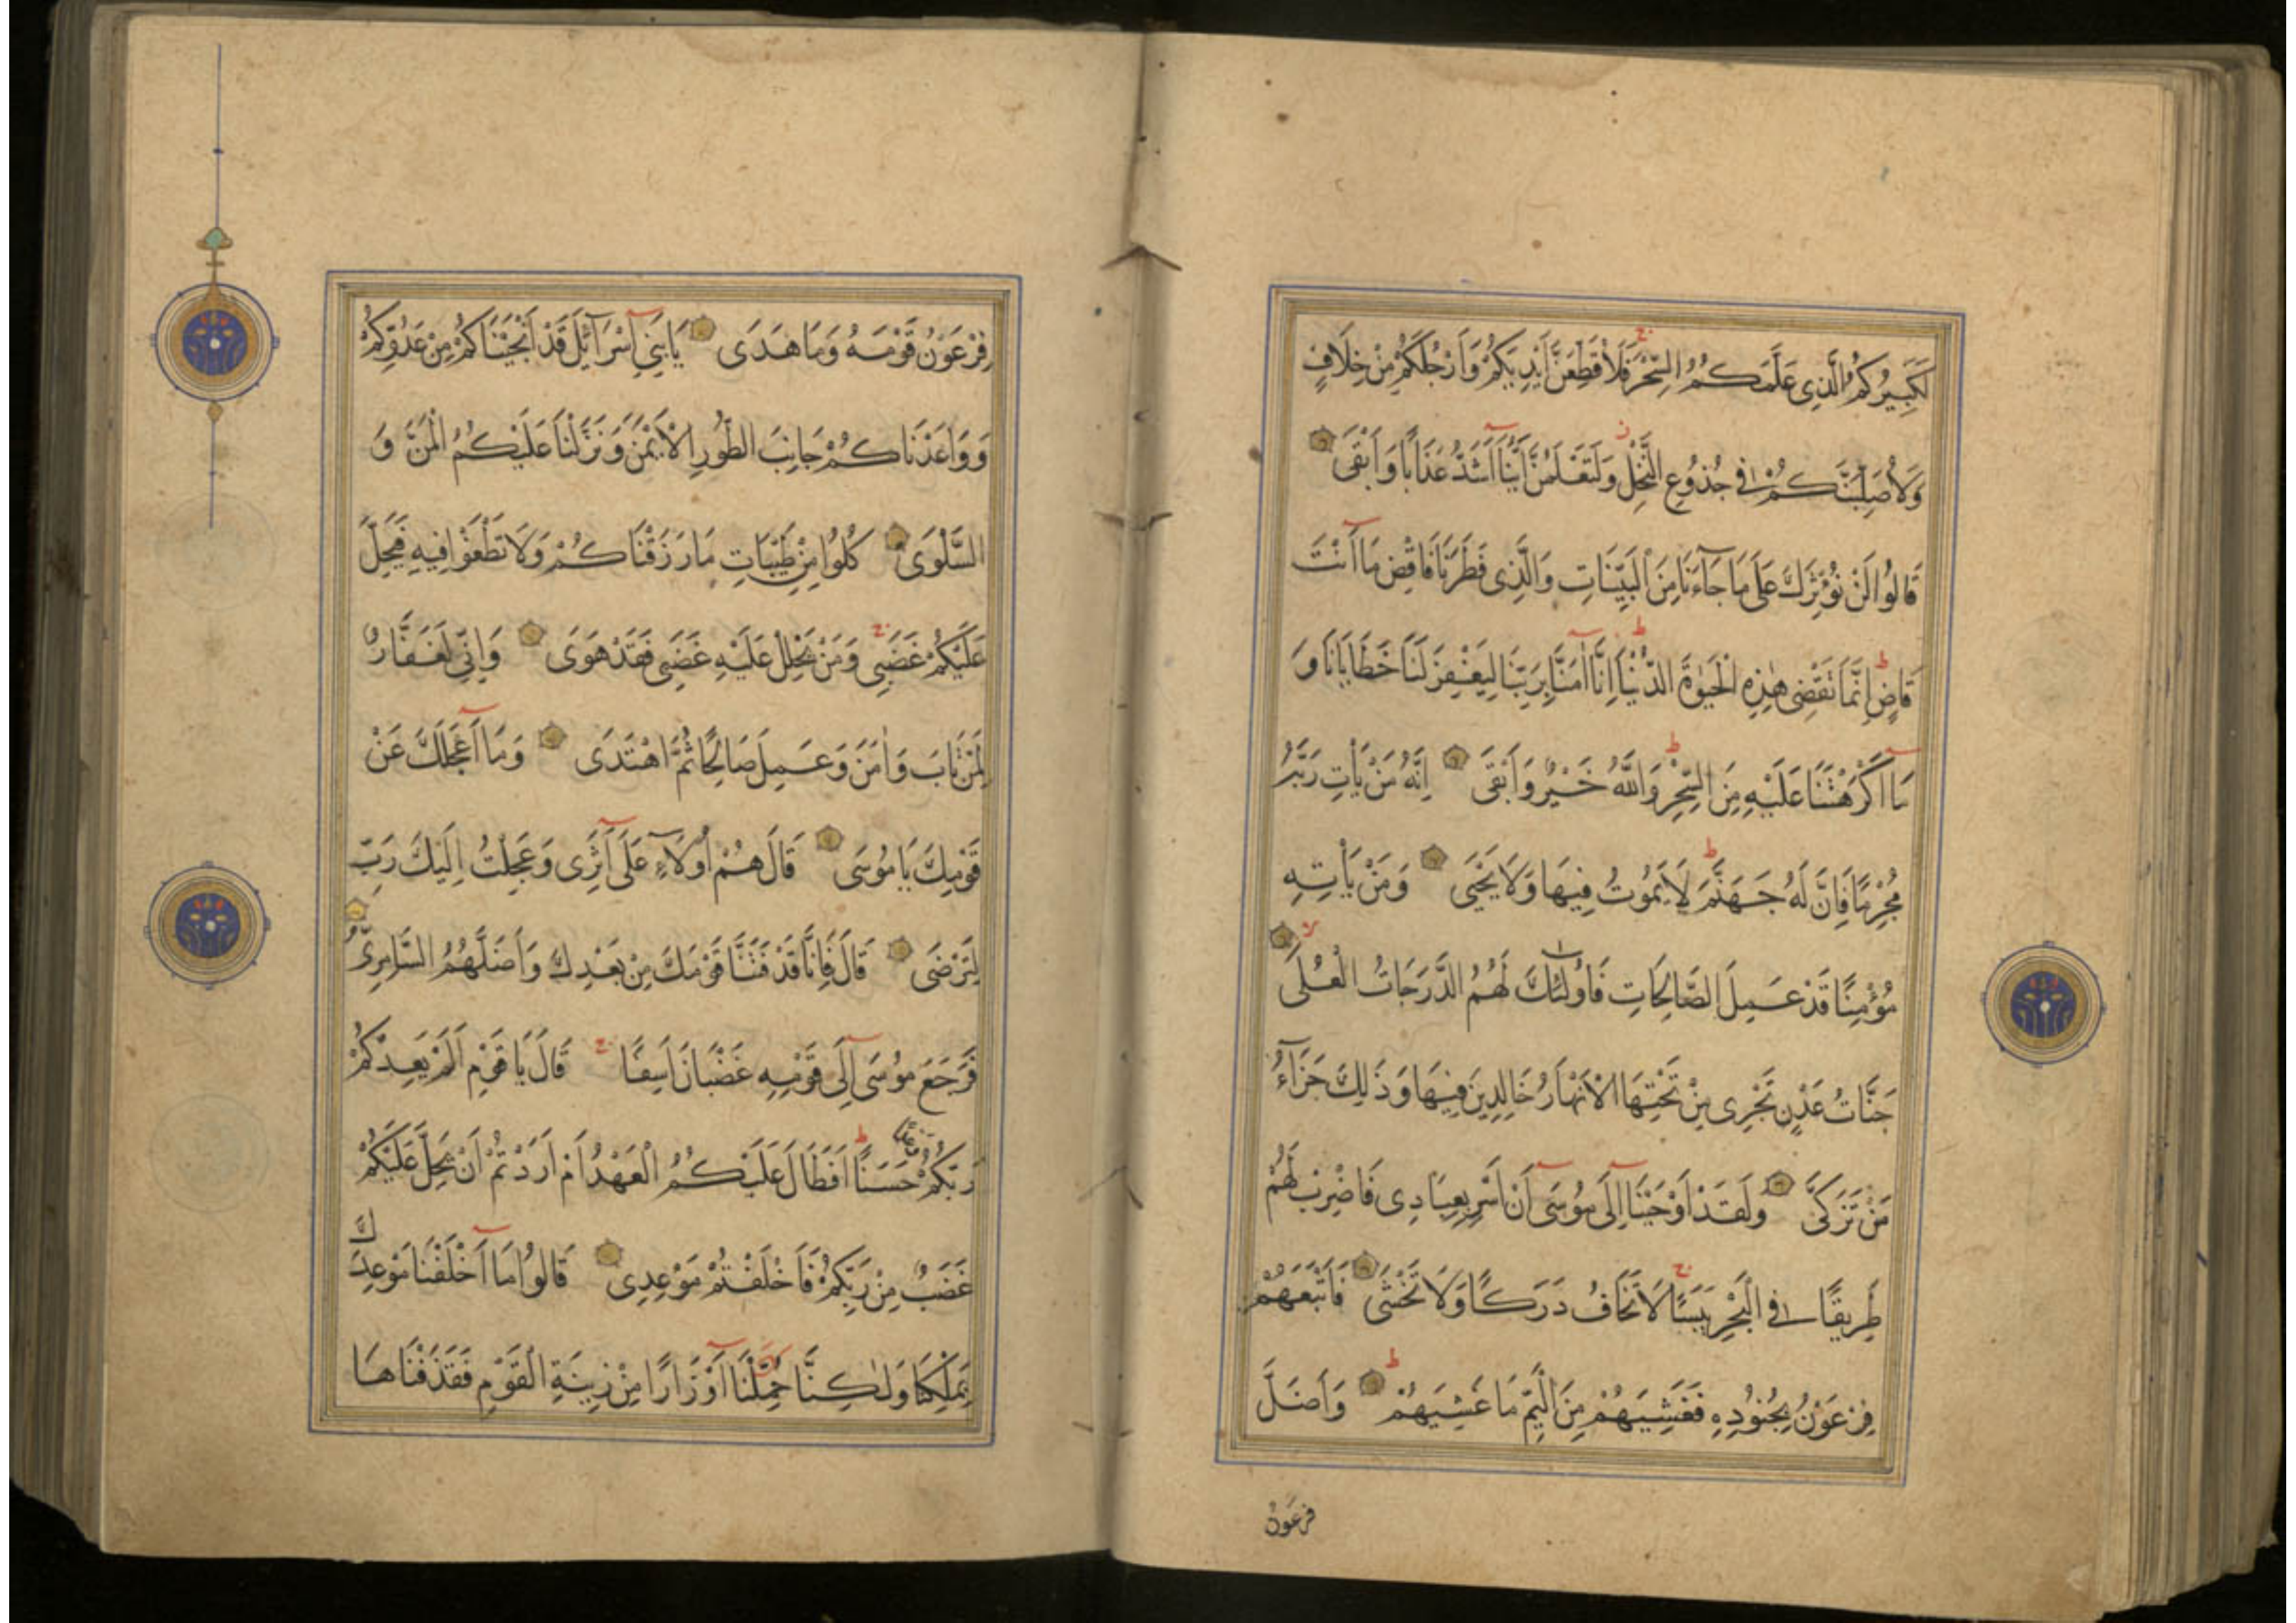 لَكَبِيرُكُمُ الَّذِي عَلَّمَكُمُ السِّحْرَ فَلَأُقَطِّعَنَّ أَيْدِيَكُمْ وَأَرْجُلَكُمْ مِنْ خِلَافٍ
وَلَأُصَلِّبَنَّكُمْ فِي جُذُوعِ النَّخْلِ وَلَتَعْلَمُنَّ أَيُّنَا أَشَدُّ عَذَابًا وَأَبْقَى
قَالُوا لَنْ نُؤْثِرَكَ عَلَى مَا جَآءَنَا مِنَ الْبَيِّنَاتِ وَالَّذِي فَطَرَنَا فَاقْضِ مَا أَنْتَ
قَاضٍ إِنَّمَا تَقْضِي هٰذِهِ الْحَيٰوةَ الدُّنْيَا إِنَّا اٰمَنَّا بِرَبِّنَا لِيَغْفِرَ لَنَا خَطَايَانَا وَ
مَا أَكْرَهْتَنَا عَلَيْهِ مِنَ السِّحْرِ وَاللَّهُ خَيْرٌ وَأَبْقَى إِنَّهُ مَنْ يَأْتِ رَبَّهُ
مُجْرِمًا فَإِنَّ لَهُ جَهَنَّمَ لَا يَمُوتُ فِيهَا وَلَا يَحْيَى وَمَنْ يَأْتِهِ
مُؤْمِنًا قَدْ عَمِلَ الصَّالِحَاتِ فَأُولٰئِكَ لَهُمُ الدَّرَجَاتُ الْعُلَى
جَنَّاتُ عَدْنٍ تَجْرِي مِنْ تَحْتِهَا الْأَنْهَارُ خَالِدِينَ فِيهَا وَذَلِكَ جَزَآءُ
مَنْ تَزَكَّى وَلَقَدْ أَوْحَيْنَا إِلَى مُوسَى أَنْ أَسْرِ بِعِبَادِي فَاضْرِبْ لَهُمْ
طَرِيقًا فِي الْبَحْرِ يَبَسًا لَا تَخَافُ دَرَكًا وَلَا تَخْشَى فَأَتْبَعَهُمْ
فِرْعَوْنُ بِجُنُودِهِ فَغَشِيَهُمْ مِنَ الْيَمِّ مَا غَشِيَهُمْ وَأَضَلَّ
فرعَوْنُ
فِرْعَوْنُ قَوْمَهُ وَمَا هَدَى يَا بَنِي إِسْرَآئِلَ قَدْ أَنْجَيْنَاكُمْ مِنْ عَدُوِّكُمْ
وَوَاعَدْنَاكُمْ جَانِبَ الطُّورِ الْأَيْمَنَ وَنَزَّلْنَا عَلَيْكُمُ الْمَنَّ وَ
السَّلْوَى كُلُوا مِنْ طَيِّبَاتِ مَا رَزَقْنَاكُمْ وَلَا تَطْغَوْا فِيهِ فَيَحِلَّ
عَلَيْكُمْ غَضَبِي وَمَنْ يَحْلِلْ عَلَيْهِ غَضَبِي فَقَدْ هَوَى وَإِنِّي لَغَفَّارٌ
لِمَنْ تَابَ وَاٰمَنَ وَعَمِلَ صَالِحًا ثُمَّ اهْتَدَى وَمَا أَعْجَلَكَ عَنْ
قَوْمِكَ يَا مُوسَى قَالَ هُمْ أُولَآءِ عَلَى أَثَرِي وَعَجِلْتُ إِلَيْكَ رَبِّ
لِتَرْضَى قَالَ فَإِنَّا قَدْ فَتَنَّا قَوْمَكَ مِنْ بَعْدِكَ وَأَضَلَّهُمُ السَّامِرِيُّ
فَرَجَعَ مُوسَى إِلَى قَوْمِهِ غَضْبَانَ أَسِفًا قَالَ يَا قَوْمِ أَلَمْ يَعِدْكُمْ
رَبُّكُمْ وَعْدًا حَسَنًا أَفَطَالَ عَلَيْكُمُ الْعَهْدُ أَمْ أَرَدْتُمْ أَنْ يَحِلَّ عَلَيْكُمْ
غَضَبٌ مِنْ رَبِّكُمْ فَأَخْلَفْتُمْ مَوْعِدِي قَالُوا مَا أَخْلَفْنَا مَوْعِدَكَ
بِمَلْكِنَا وَلٰكِنَّا حُمِّلْنَا أَوْزَارًا مِنْ زِينَةِ الْقَوْمِ فَقَذَفْنَاهَا